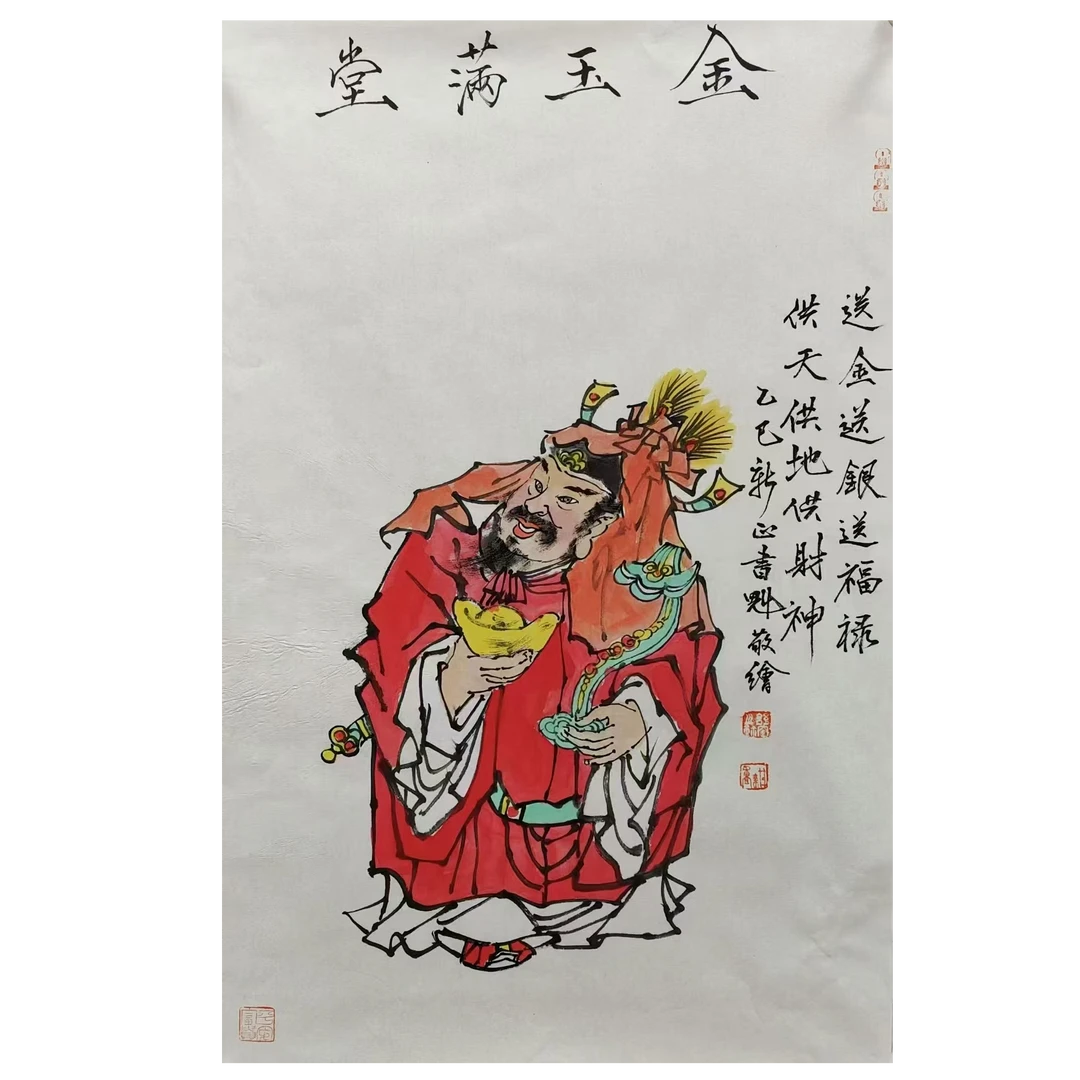 金玉满堂
送金送銀送福禄
供天供地供财神
乙巳新正書魁敬繪